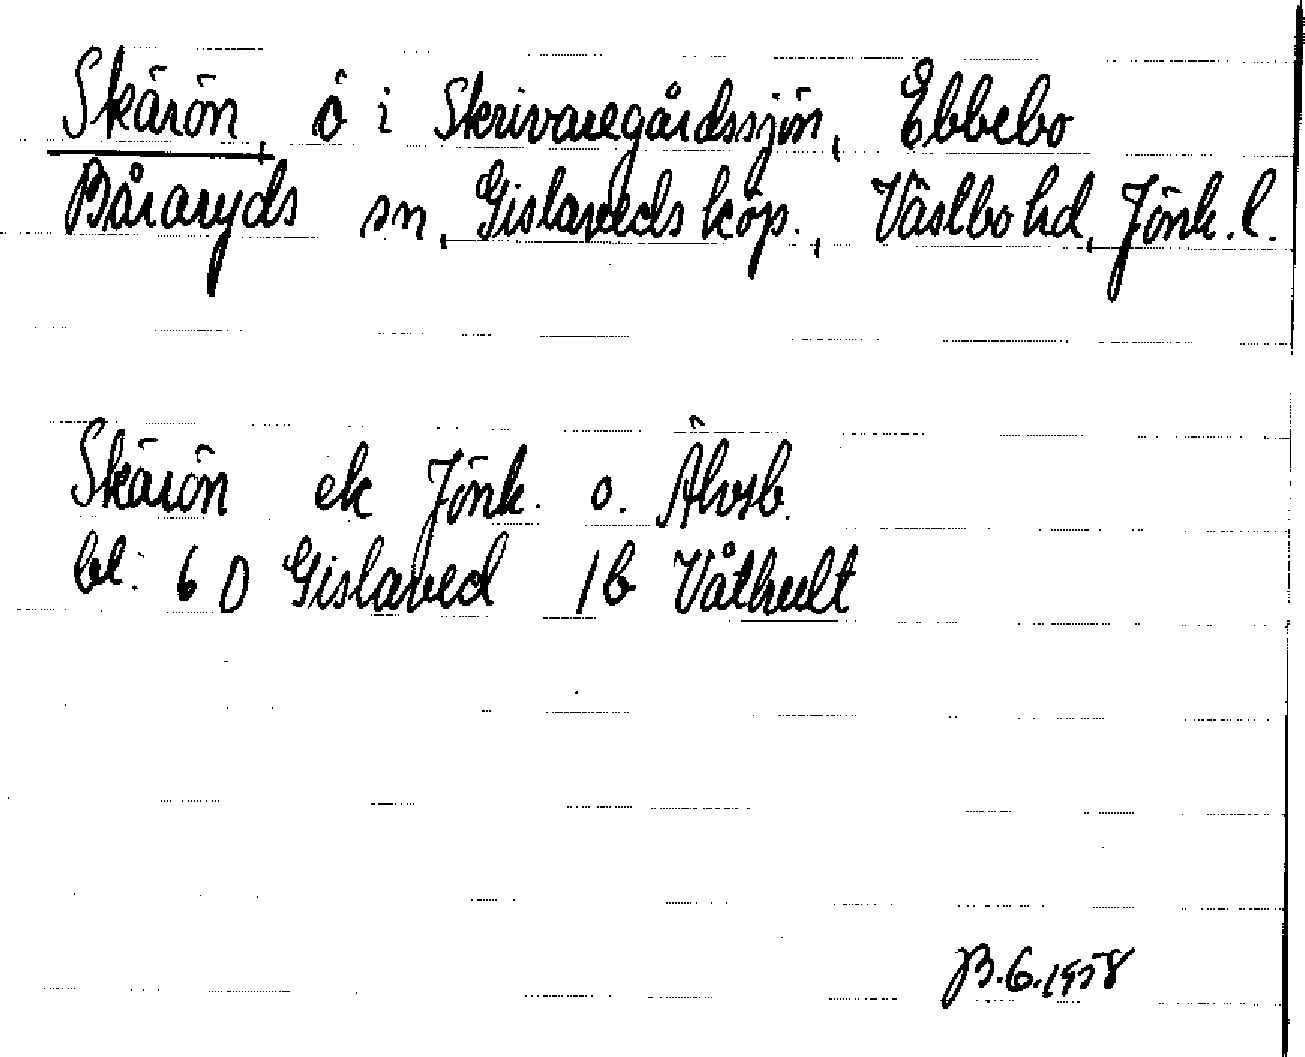 Skärön, ö i Skrivaregårdssjön, Ebbebo
Båraryds sn, Gislaveds köp., Västbo hd, Jönk. l.
Skärön ek Jönk. o. Älvsb.
bl: 6 D Gislaved 1b Våthult
B.G. 1958